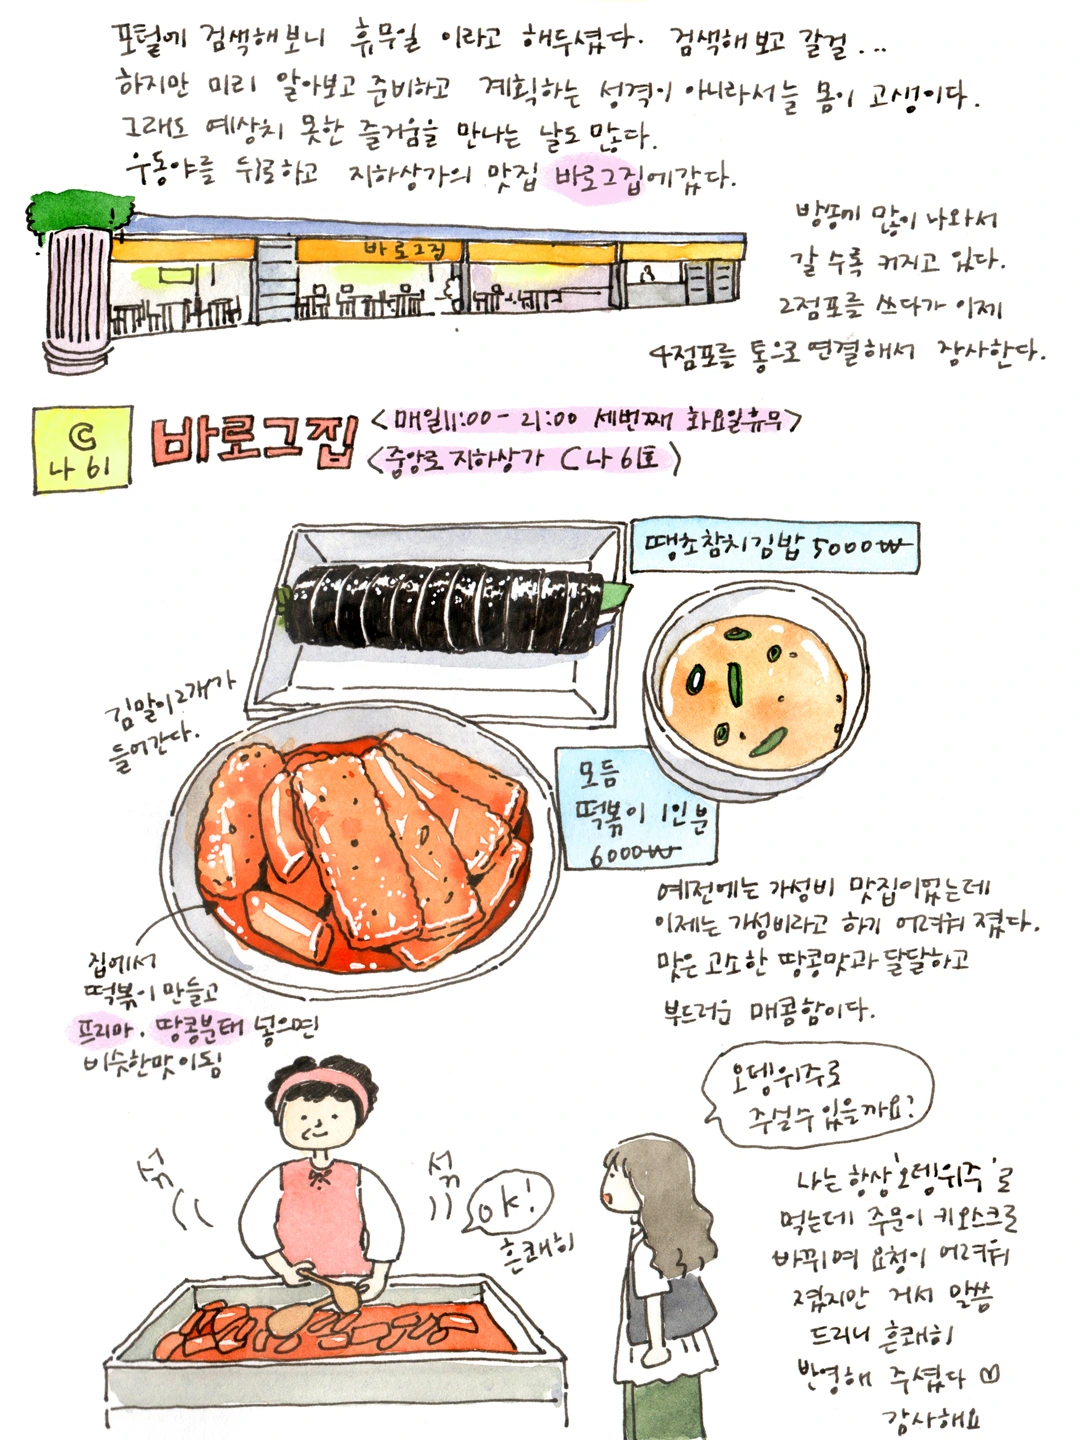 포털에 검색해보니 휴무일 이라고 해두셨다. 검색해 보고 갈걸...
하지만 미리 알아보고 준비하고 계획하는 성격이 아니라서늘 몸이 고생이다.
그래도 예상치 못한 즐거움을 만나는 날도 많다.
우동야를 뒤로하고 지하상가의 맛집 바로그집에갔다.
방송에 많이 나와서
갈 수록 커지고 있다.
2점포를 쓰다가 이제
4점포를 통으로 연결해서 장사한다.
바로그집
C
나 61
바로그집
<매일11:00- 21:00 세번째 화요일휴무>
<중앙로 지하상가 C 나 61호>
땡초참치김밥 5000₩
김말이2개가
들어간다.
모듬
떡볶이 1인분
6000₩
예전에는 가성비 맛집이었는데
이제는 가성비라고 하기 어려워 졌다.
맛은 고소한 땅콩맛과 달달하고
부드러운 매콤함이다.
집에서
떡볶이 만들고
프리마, 땅콩분태 넣으면
비슷한맛이됨
오뎅위주로
주실수 있을까요?
섞
섞
OK!
흔쾌히
나는 항상 '오뎅위주'로
먹는데 주문이 키오스크로
바뀌여 요청이 어려워
졌지만 가서 말씀
드리니 흔쾌히
반영해 주셨다 ♡
감사해요